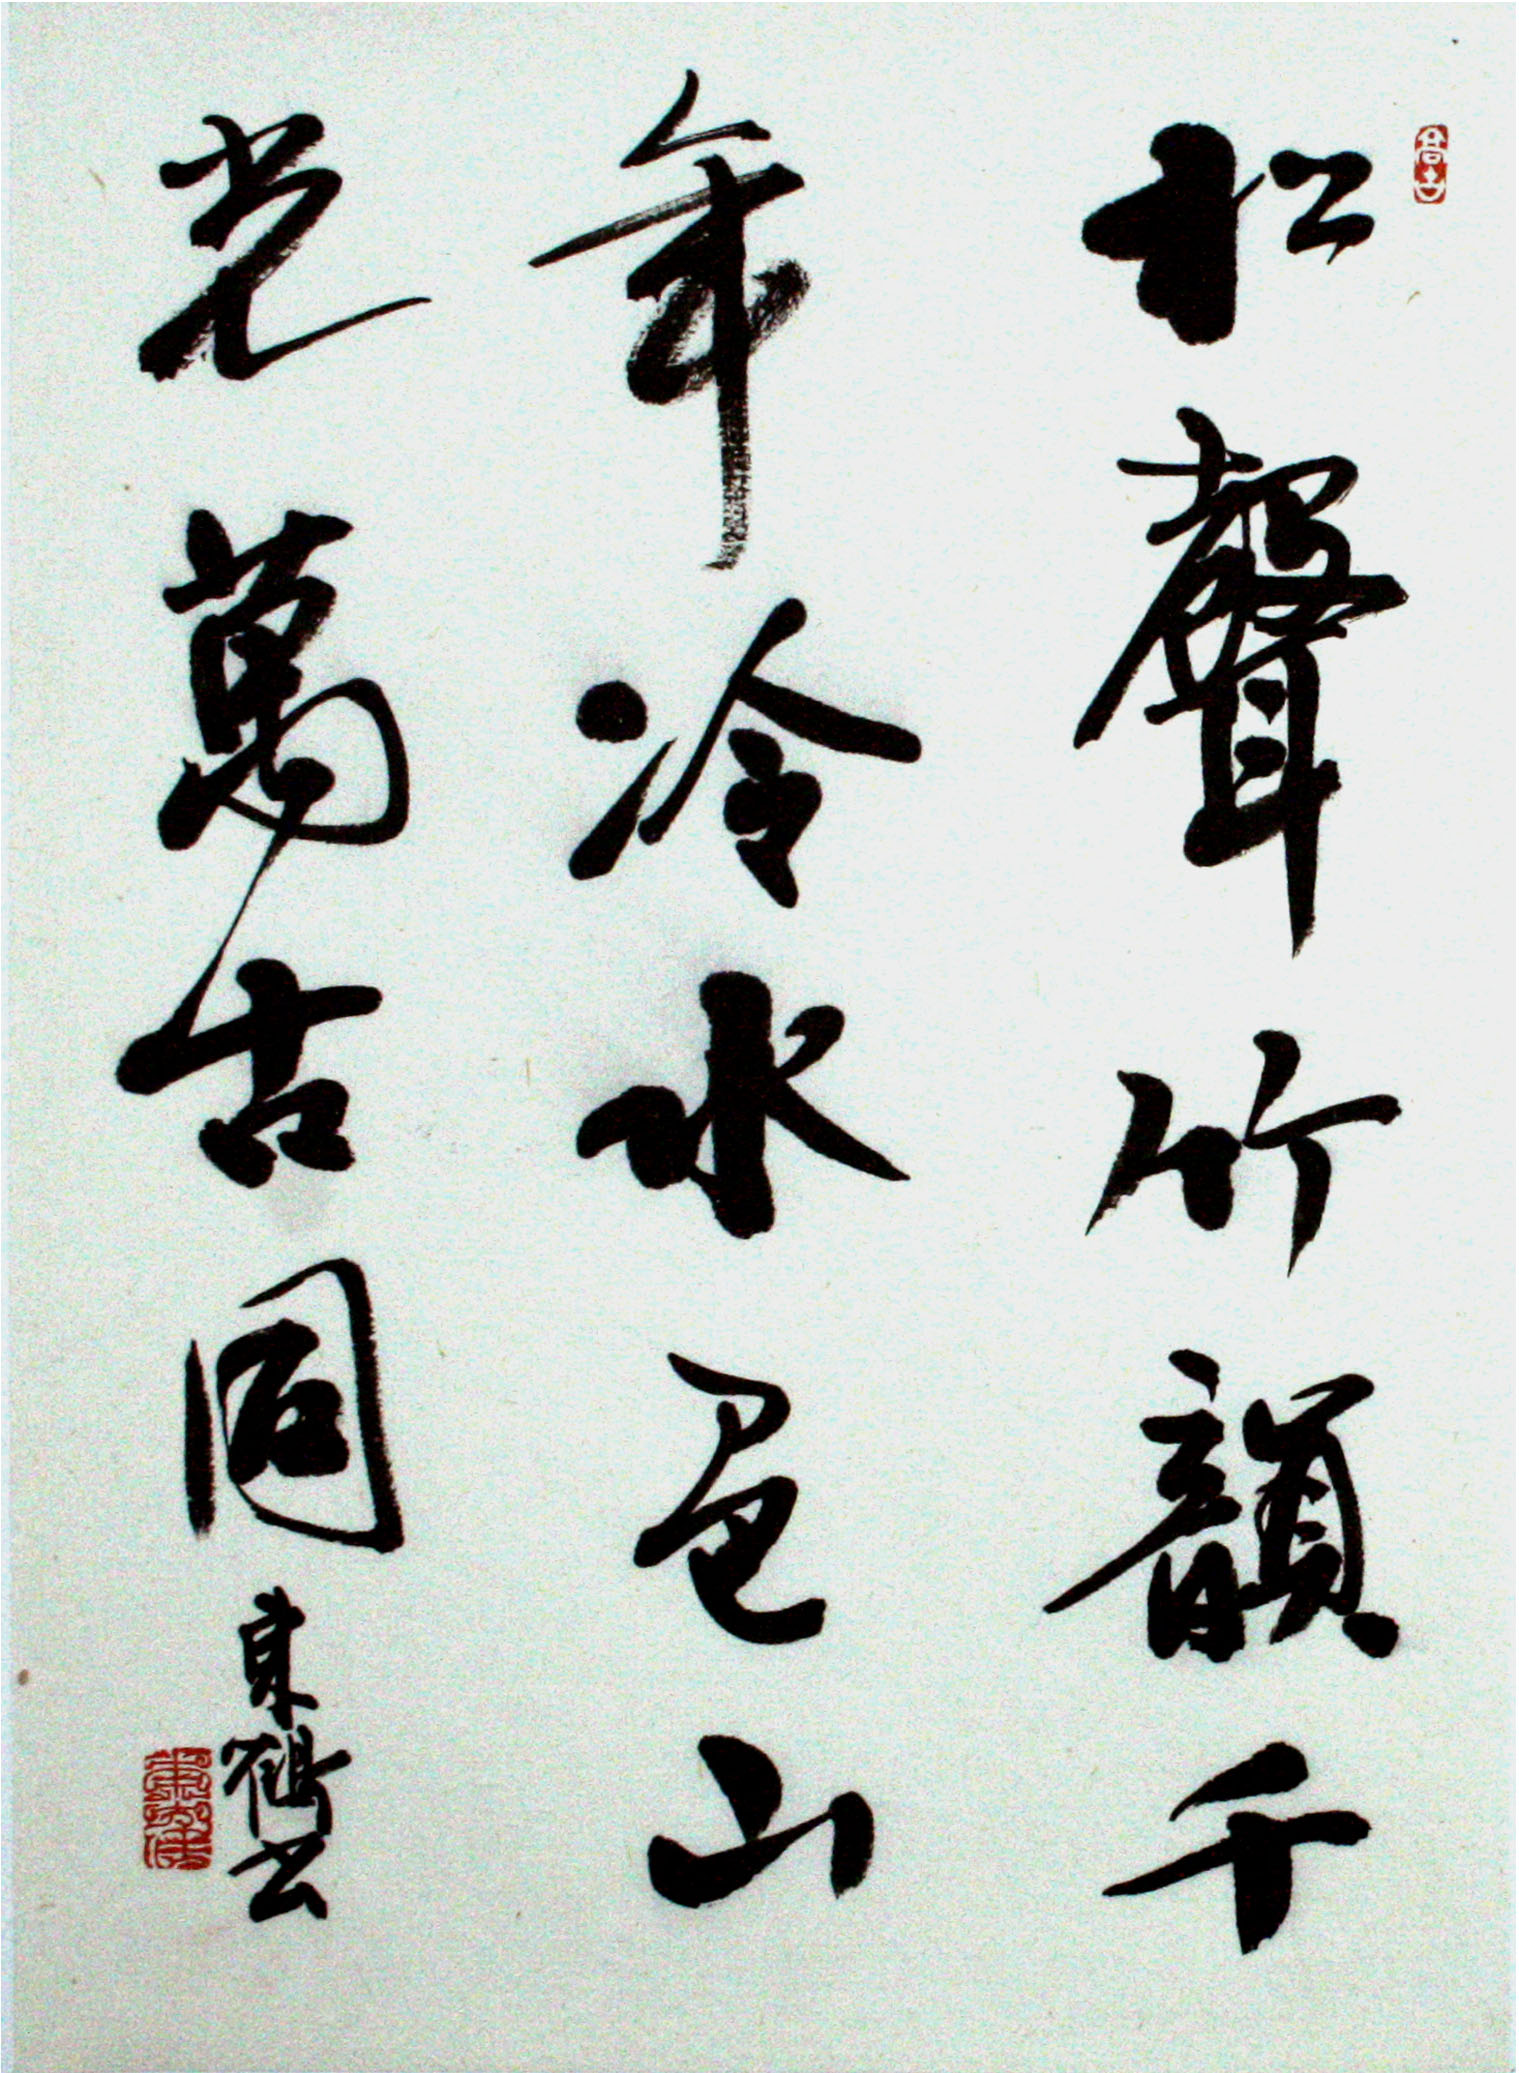 松聲竹韻千
年冷水色山
光萬古同
東鶴書